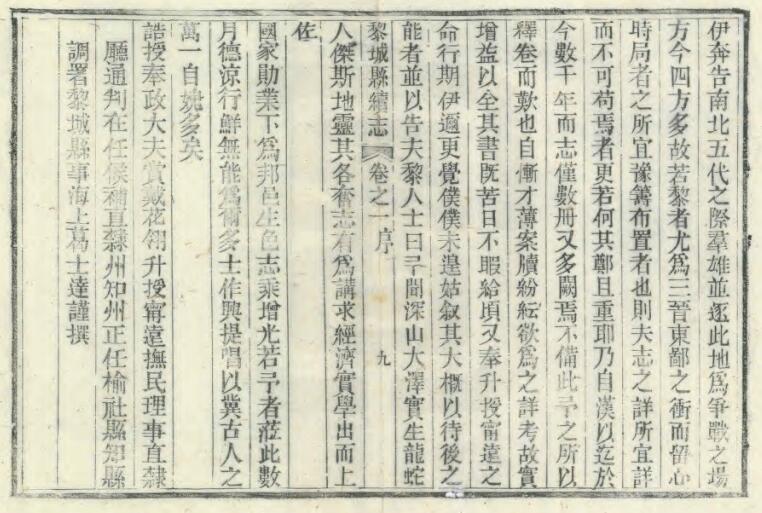 伊奔告南北五代之際羣雄並逐此地爲爭戰之場
方今四方多故若黎者尤爲三晉東鄙之衝而留心
時局者之所宜豫籌布置者也則夫志之詳所宜詳
而不可苟焉者更若何其鄭且重耶乃自漢以迄於
今數千年而志僅數冊又多闕焉不備此予之所以
釋卷而歎也自慚才薄案牘紛紜欲爲之詳考故實
增益以全其書旣苦日不暇給頃又奉升授甯遠之
命行期伊邇更覺僕僕未遑姑叙其大槪以待後之
能者並以告夫黎人士曰予聞深山大澤實生龍蛇
黎城縣續志 卷之一 序 九
人傑斯地靈其各奮志有爲講求經濟實學出而上
佐
國家勛業下爲邦邑生色志乘增光若予者蒞此數
月德涼行鮮無能爲爾多士作興提唱以冀古人之
萬一自媿多矣
誥授奉政大夫賞戴花翎升授甯遠撫民理事直隸
廳通判在任候補直隸州知州正任榆社縣知縣
調署黎城縣事海上葛士達謹撰